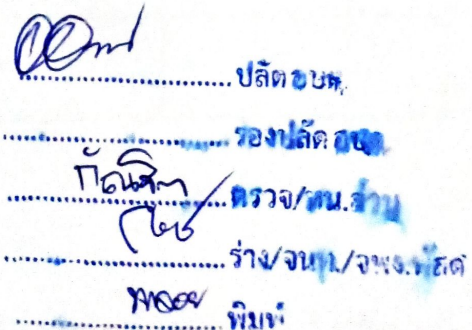 ....................ปลัดอบต.
....................รองปลัดอบต
กัณฐิกา....................ตรวจ/หน.ส่วน
....................ร่าง/จนท./จพง.พัสดุ
พลอย....................พิมพ์